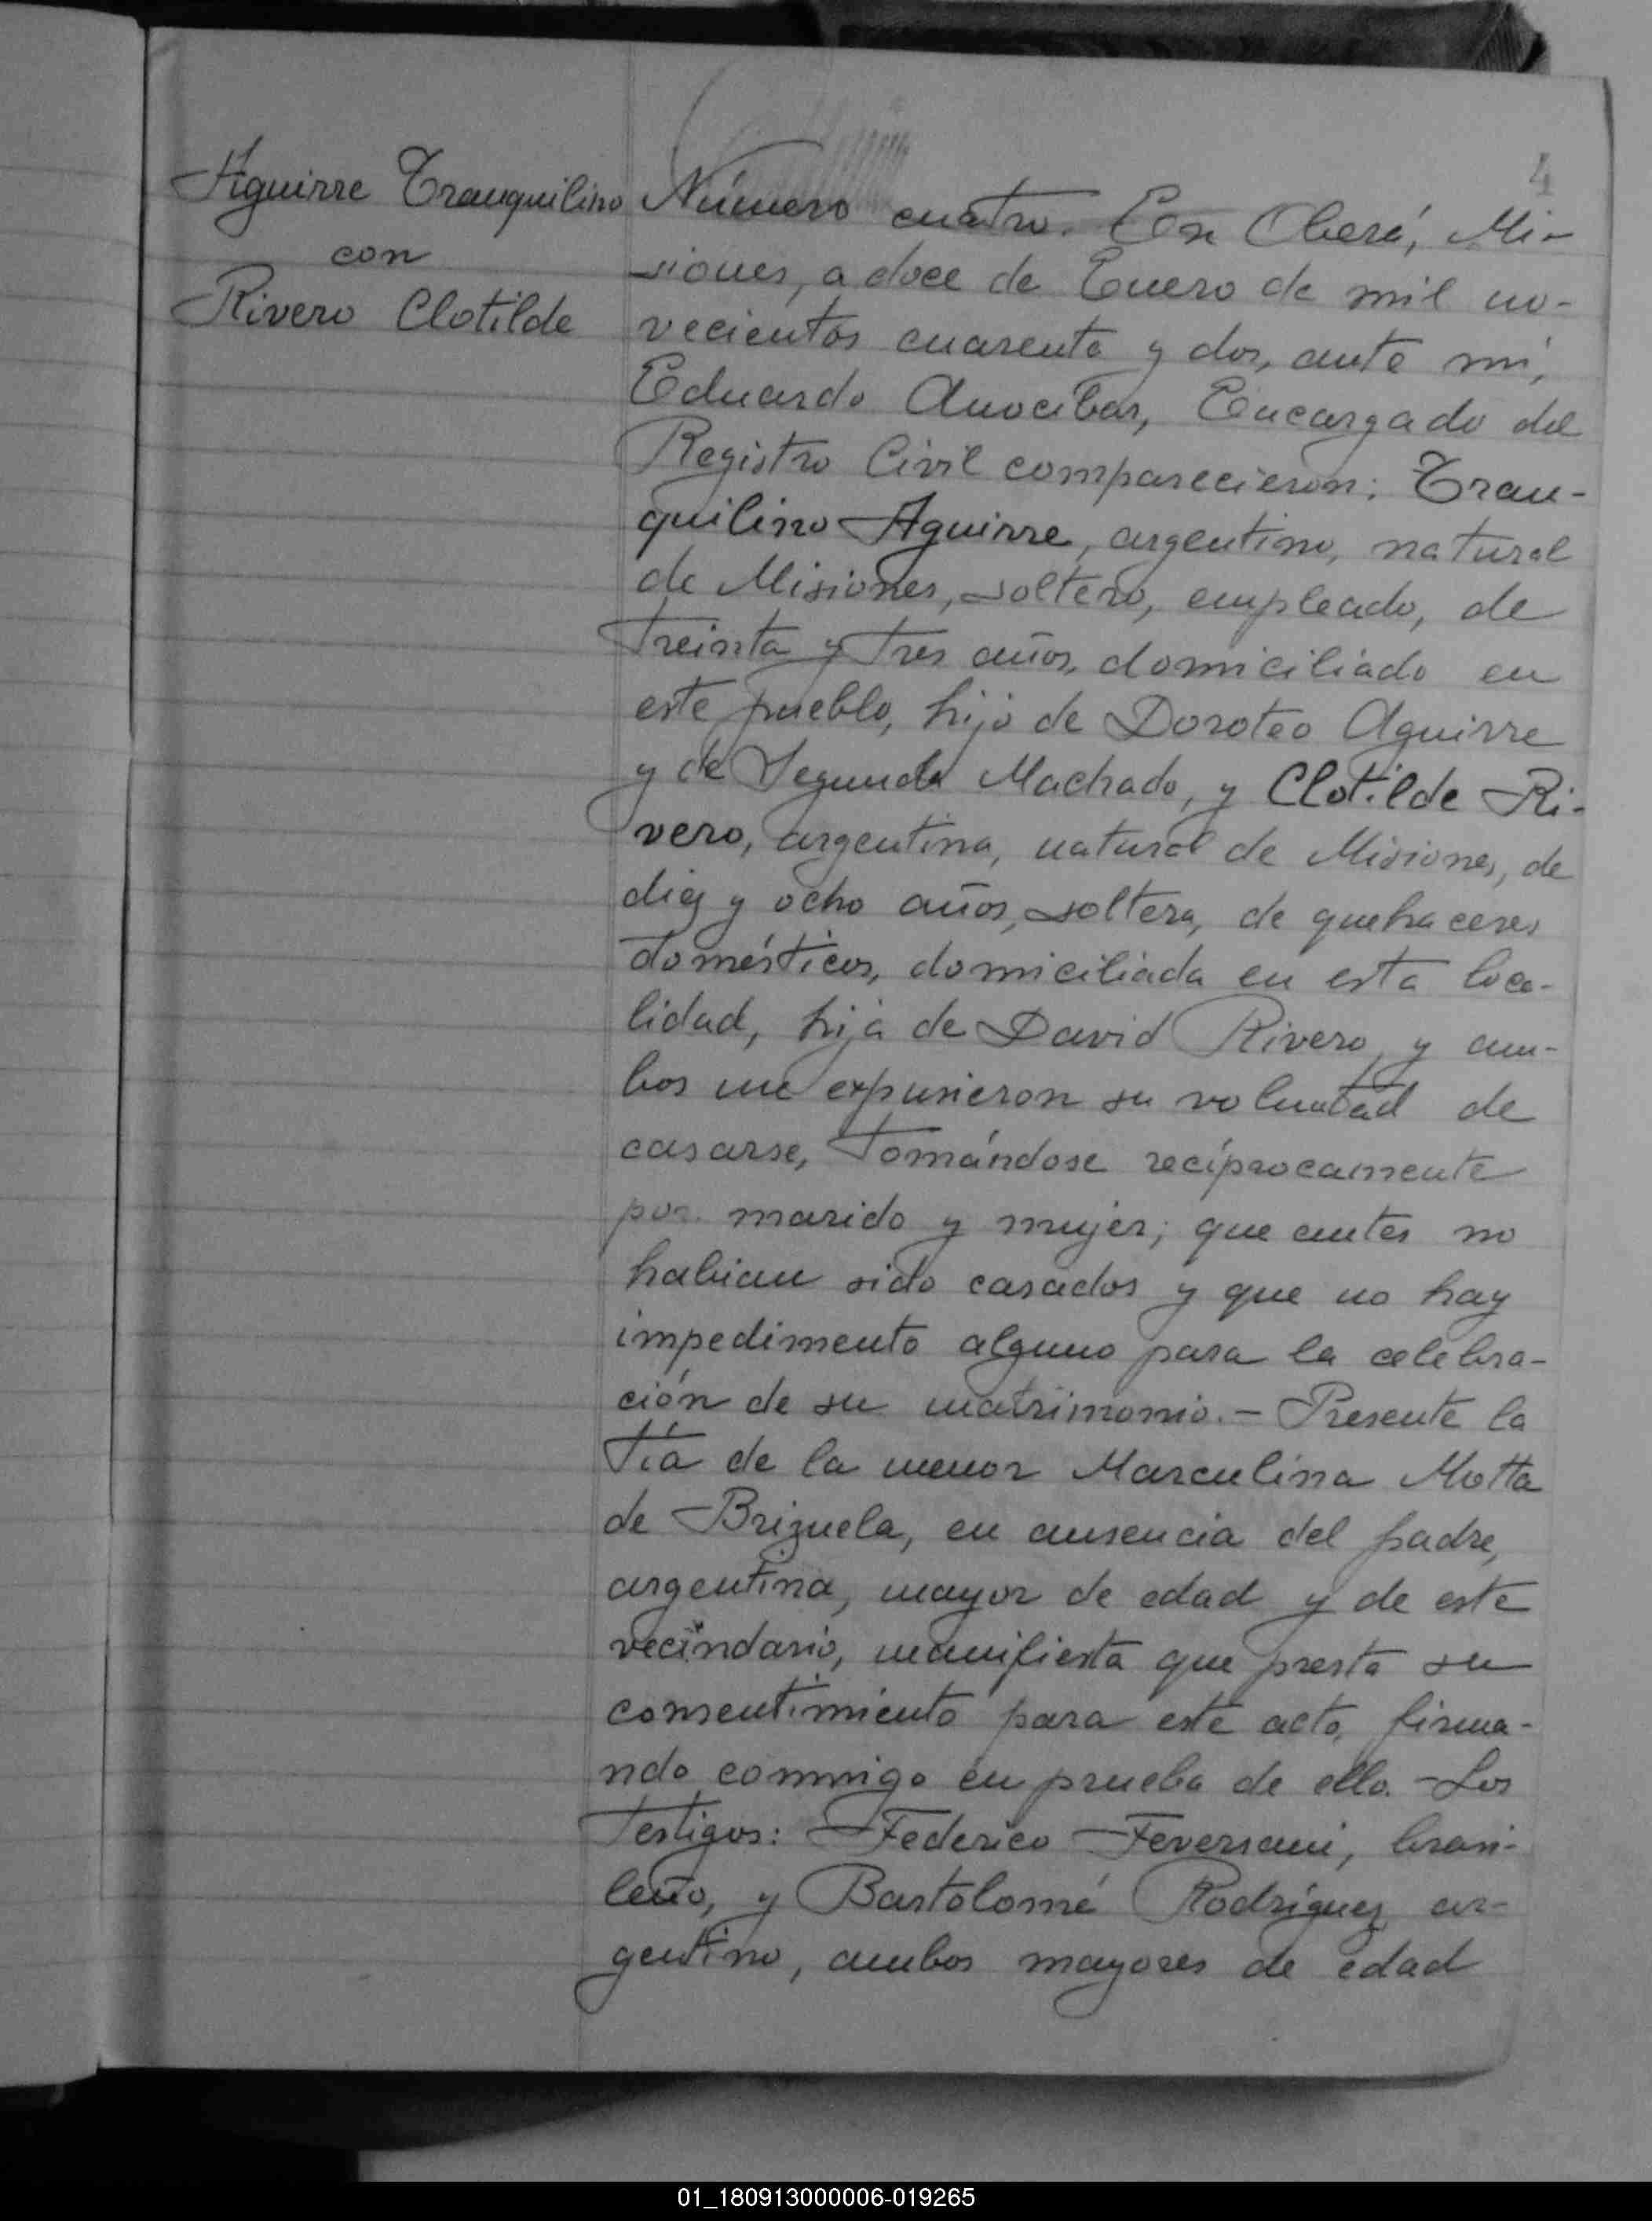 4
Aguirre Tranquilino
con
Rivero Clotilde
Número cuatro. En Oberá, Mi-
siones, a doce de Enero de mil no-
vecientos cuarenta y dos, ante mí,
Eduardo Anocibar, Encargado del
Registro Civil comparecieron: Tran-
quilino Aguirre, argentino, natural
de Misiones, soltero, empleado, de
treinta y tres años, domiciliado en
este pueblo, hijo de Doroteo Aguirre
y de Segunda Machado, y Clotilde Ri-
vero, argentina, natural de Misiones, de
diez y ocho años, soltera, de quehaceres
domésticos, domiciliada en esta loca-
lidad, hija de David Rivero, y am-
bos me expusieron su voluntad de
casarse, tomándose recíprocamente
por marido y mujer; que antes no
habian sido casados y que no hay
impedimento alguno para la celebra-
ción de su matrimonio.- Presente la
tía de la menor Marculina Motta
de Brizuela, en ausencia del padre,
argentina, mayor de edad y de este
vecindario, manifiesta que presta su
consentimiento para este acto, firma-
ndo conmigo en prueba de ello.- Los
testigos: Federico Feversani, brasi-
leño, y Bartolomé Rodríguez, ar-
gentino, ambos mayores de edad
01_180913000006-019265